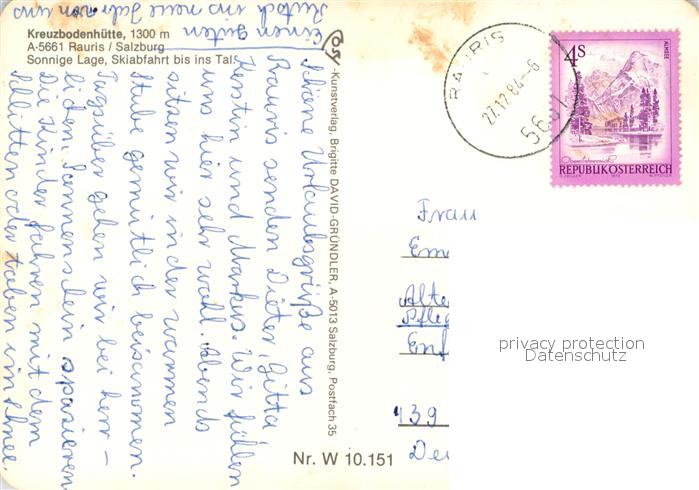 Kreuzbodenhütte, 1300 m
A-5661 Rauris / Salzburg
Sonnige Lage, Skiabfahrt bis ins Tal
Schöne Urlaubsgrüße aus
Rauris senden Dieter, Gitta,
Kerstin und Markus. Wir fühlen
uns hier sehr wohl. Abends
sitzen wir in der warmen
Stube gemütlich beisammen.
Tagsüber gehen wir bei herr-
lichem Sonnenschein spazieren
Die Kinder fahren mit dem
Schlitten oder toben im Schnee.
Einen guten
Rutsch ins neue Jahr von uns
Kunstverlag, Brigitte DAVID-GRÜNDLER, A-5013 Salzburg, Postfach 35
Nr. W 10.151
RAURIS
27.12.84-6
5661
4S
ALMSEE
Oberösterreich
REPUBLIK ÖSTERREICH
Frau
Em
Alte
Pfleg
Enf
439
De
privacy protection
Datenschutz